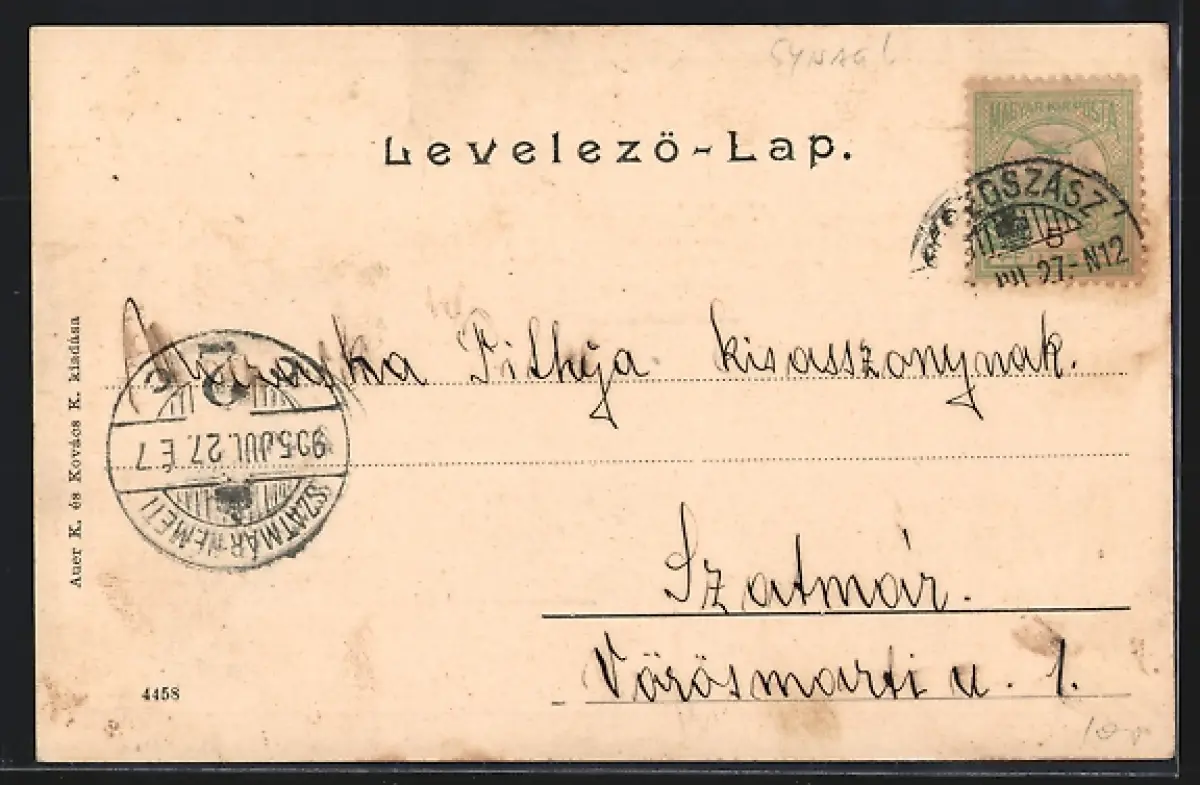 SYNAG!
Levelező-Lap.
MAGYAR KIR. POSTA
EGSZÁSZ
5
27.-N12
Fithéja kisasszonynak.
2
905 JUL. 27. É 7
SZATMÁR-NÉMETI
Szatmár.
Vörösmarti u. 1.
Auer K. és Kovács K. kiadása
4458